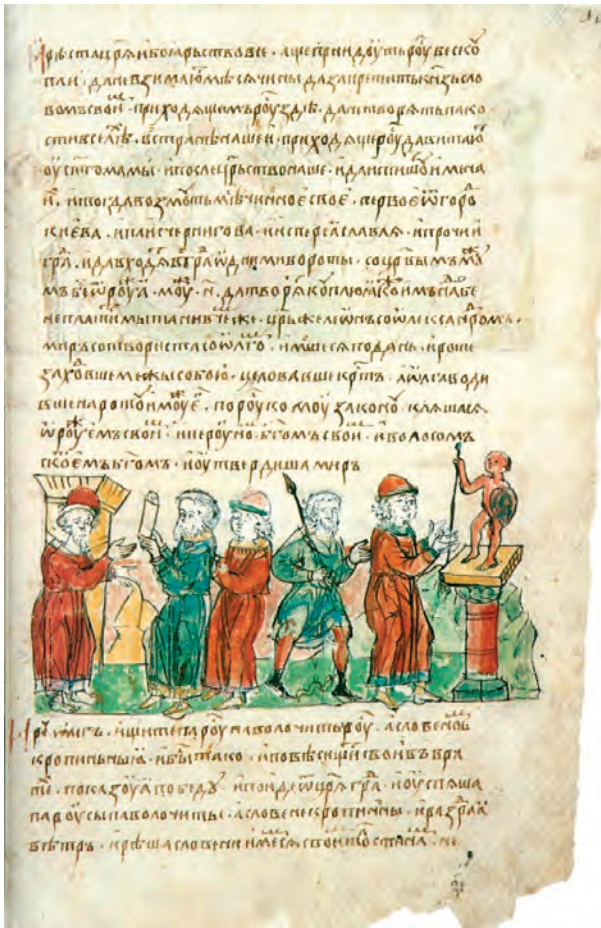 Рѣста цр҃ѧ и боꙗрьство все · аще приидоуть роу бес коу
пли · да не взимаю мѣсѧчины да запретить кнѕь сло
вомъ свои · приходѧщимъ роу здѣ · да не творѧть пако
сти в селѣ · в странѣ нашеи · приходѧщеи роу да витаю
оу ст҃го мамы · и послеть црьство наше · и да испишоу имена
и · и тогда возмоуть мѣсѧчное свое · первое ѿ горо
киева · и паки с чернигова · и ис переꙗславлѧ · и прочии
гра · и да входѧ в гра ѡдинми вороты · со црвымъ моу
мъ без ѡроужїѧ · моу · н҃ · да творѧ коуплю ꙗко имъ надобе
не платѧчи мыта ни в чем же · црь же леѡнъ со ѡлександромъ ·
миръ сотвориста со ѡлго · имшесѧ по дань · и роте
заходѧвше межы собою · целовавше крть · а ѡлга води
вше на ротоу и моуж е · по роускомоу законоу · клѧшасѧ
ѡроужьемъ свои · и пероуно бгомъ свои · и волосомъ
скоемъ бгомъ · и оутвердиша миръ
И ре ѡлегъ · ищиите пароу паволочиты роу · а словено
кропиньныꙗ · и бы тако · и повѣси щи свои въ вра
те · показоуа победоу · и поиде ѿ црѧгра · и воуспѧша
пароусы паволочитые · а словене кропинны · и раздра а
вѣтръ · и рѣша словени имемсѧ своим толстина · не